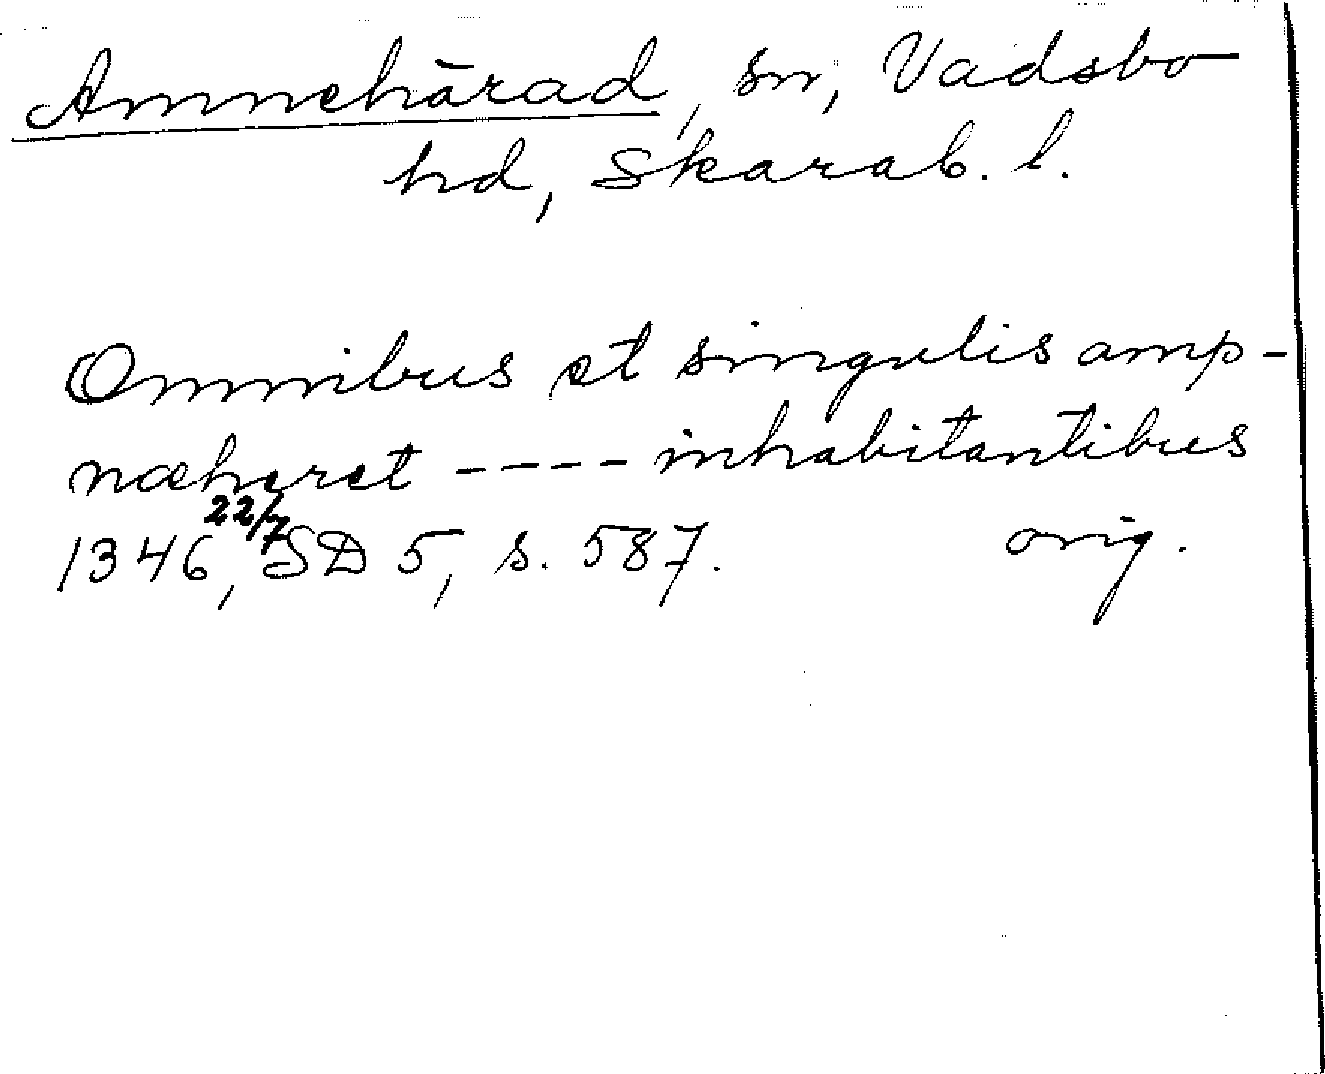 Amnehärad, sn, Vadsbo
hd, Skarab. l.
Omnibus et singulis amp-
næheret ---- inhabitantibus
1346 22/7, SD 5, s. 587. orig.